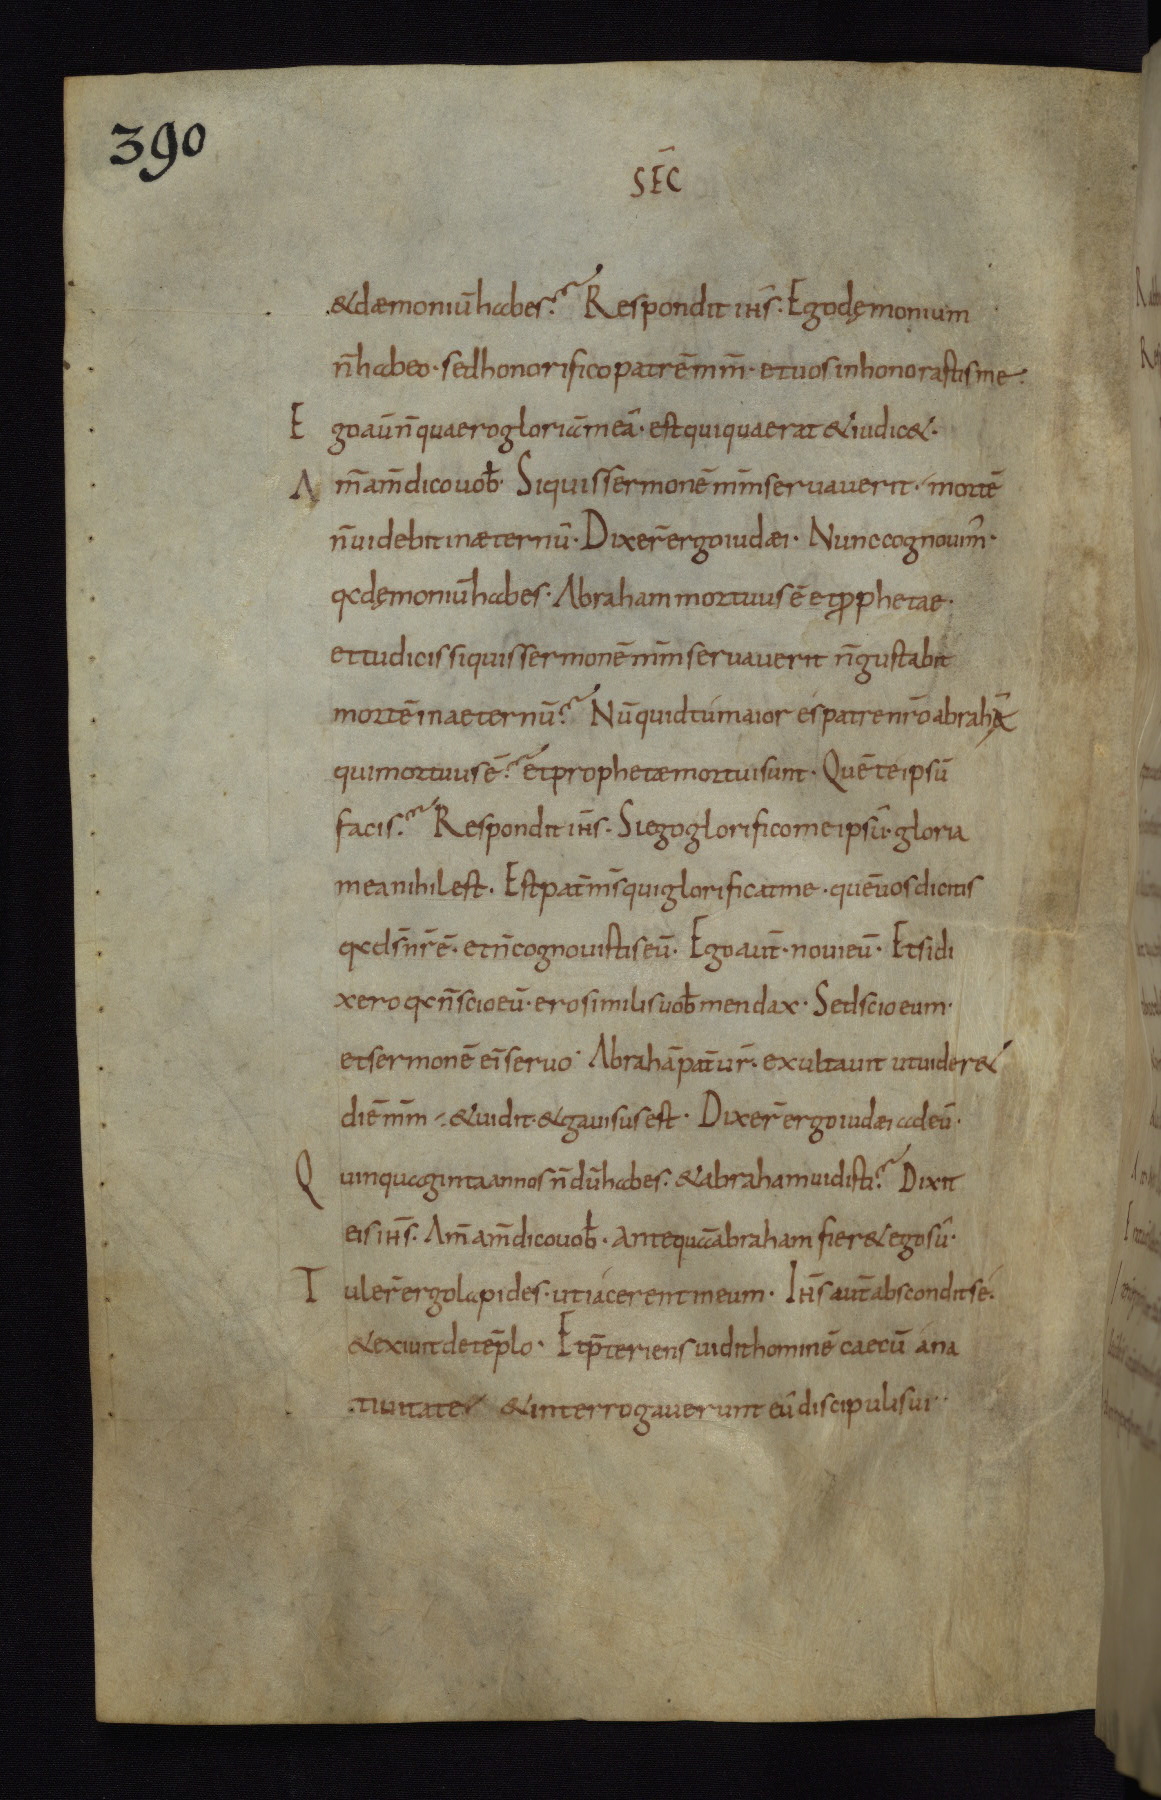 390
SEC̄
& dæmoniū habes. Respondit ih̄s. Ego dęmonium
n̄ habeo. sed honorifico patrē mm̄. et uos inhonorastis me.
Ego aūt n̄ quaero gloriā meā. est qui quaerat & iudic&.
Am̄ am̄ dico uob̄. Siquis sermonē mm̄ seruauerit. mortē
n̄ uidebit in æternū. Dixer̄ ergo iudæi. Nunc cognouim̄.
qd dęmoniū habes. Abraham mortuus ē et ꝓphetae.
et tu dicis siquis sermonē mm̄ seruauerit n̄ gustabit
mortē in aeternū. Nūquid tú maior és patre nr̄o abrahā
qui mortuus ē. et prophetæ mortui sunt. Quē te ipsū
facis. Respondit ih̄s. Si ego glorifico me ipsū. gloria
mea nihil est. Est pat̄ ms̄ qui glorificat me. quē uos dicitis
qd ds̄ nr̄ ē. et n̄ cognouistis eū. Ego aut̄. noui eū. Et si di
xero qd n̄ scio eū. ero similis uob̄ mendax. Sed scio eum.
et sermonē ei̅ seruo. Abrahā pat̄ ur̄. exultauit ut uider&
diē mm̄. & uidit. & gauisus est. Dixer̄ ergo iudæi ad eū.
Quinquaginta annos n̄dū habes. & abraham uidisti. Dixit
eis ih̄s. Am̄ am̄ dico uob̄. antequā abraham fier& ego sū.
Tuler̄ ergo lapides. ut iacerent in eum. Ih̄s aut̄ abscondit sé.
& exiuit de tēplo. Et p̄teriens uidit hominē caecū á na
tiuitate & interrogauerunt eū discipuli sui.